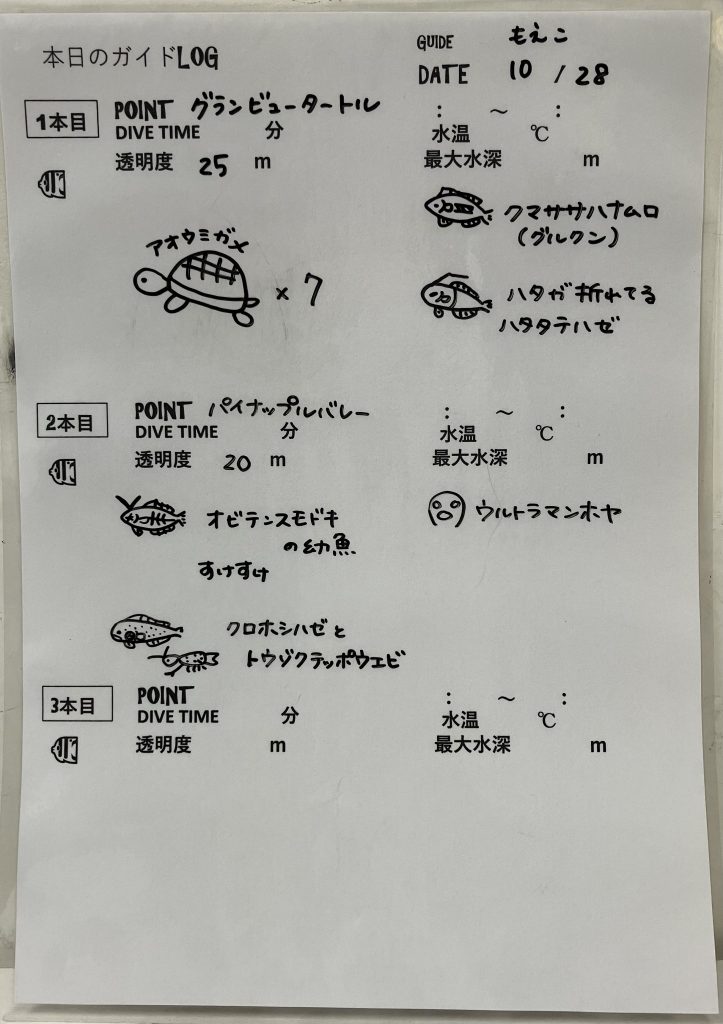 本日のガイドLOG
GUIDE もえこ
DATE 10 / 28
1本目
POINT グランビュータートル
DIVE TIME 分
透明度 25 m
: ～ :
水温 ℃
最大水深 m
アオウミガメ
× 7
クマササハナムロ
(グルクン)
ハタが折れてる
ハタタテハゼ
2本目
POINT パイナップルバレー
DIVE TIME 分
透明度 20 m
: ～ :
水温 ℃
最大水深 m
オビテンスモドキ
の幼魚
すけすけ
ウルトラマンホヤ
クロホシハゼと
トウゾクテッポウエビ
3本目
POINT
DIVE TIME 分
透明度 m
: ～ :
水温 ℃
最大水深 m